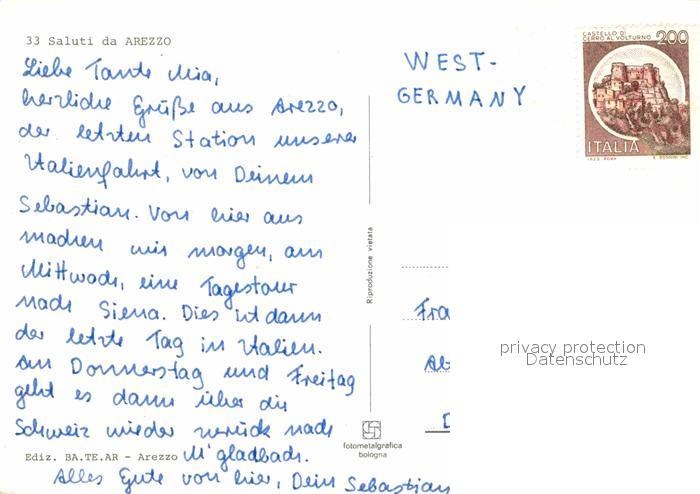 33 Saluti da AREZZO
Liebe Tante Mia,
herzliche Grüße aus Arezzo,
der letzten Station unserer
Italienfahrt, von Deinem
Sebastian. Von hier aus
machen wir morgen, am
Mittwoch, eine Tagestour
nach Siena. Dies ist dann
der letzte Tag in Italien.
Am Donnerstag und Freitag
geht es dann über die
Schweiz wieder zurück nach
M'gladbach.
Alles Gute von hier, Dein Sebastian
Ediz. BA.TE.AR - Arezzo
Riproduzione vietata
fotometalgrafica
bologna
WEST-
GERMANY
CASTELLO DI
CERRO AL VOLTURNO
200
ITALIA
Fra
privacy protection
Datenschutz